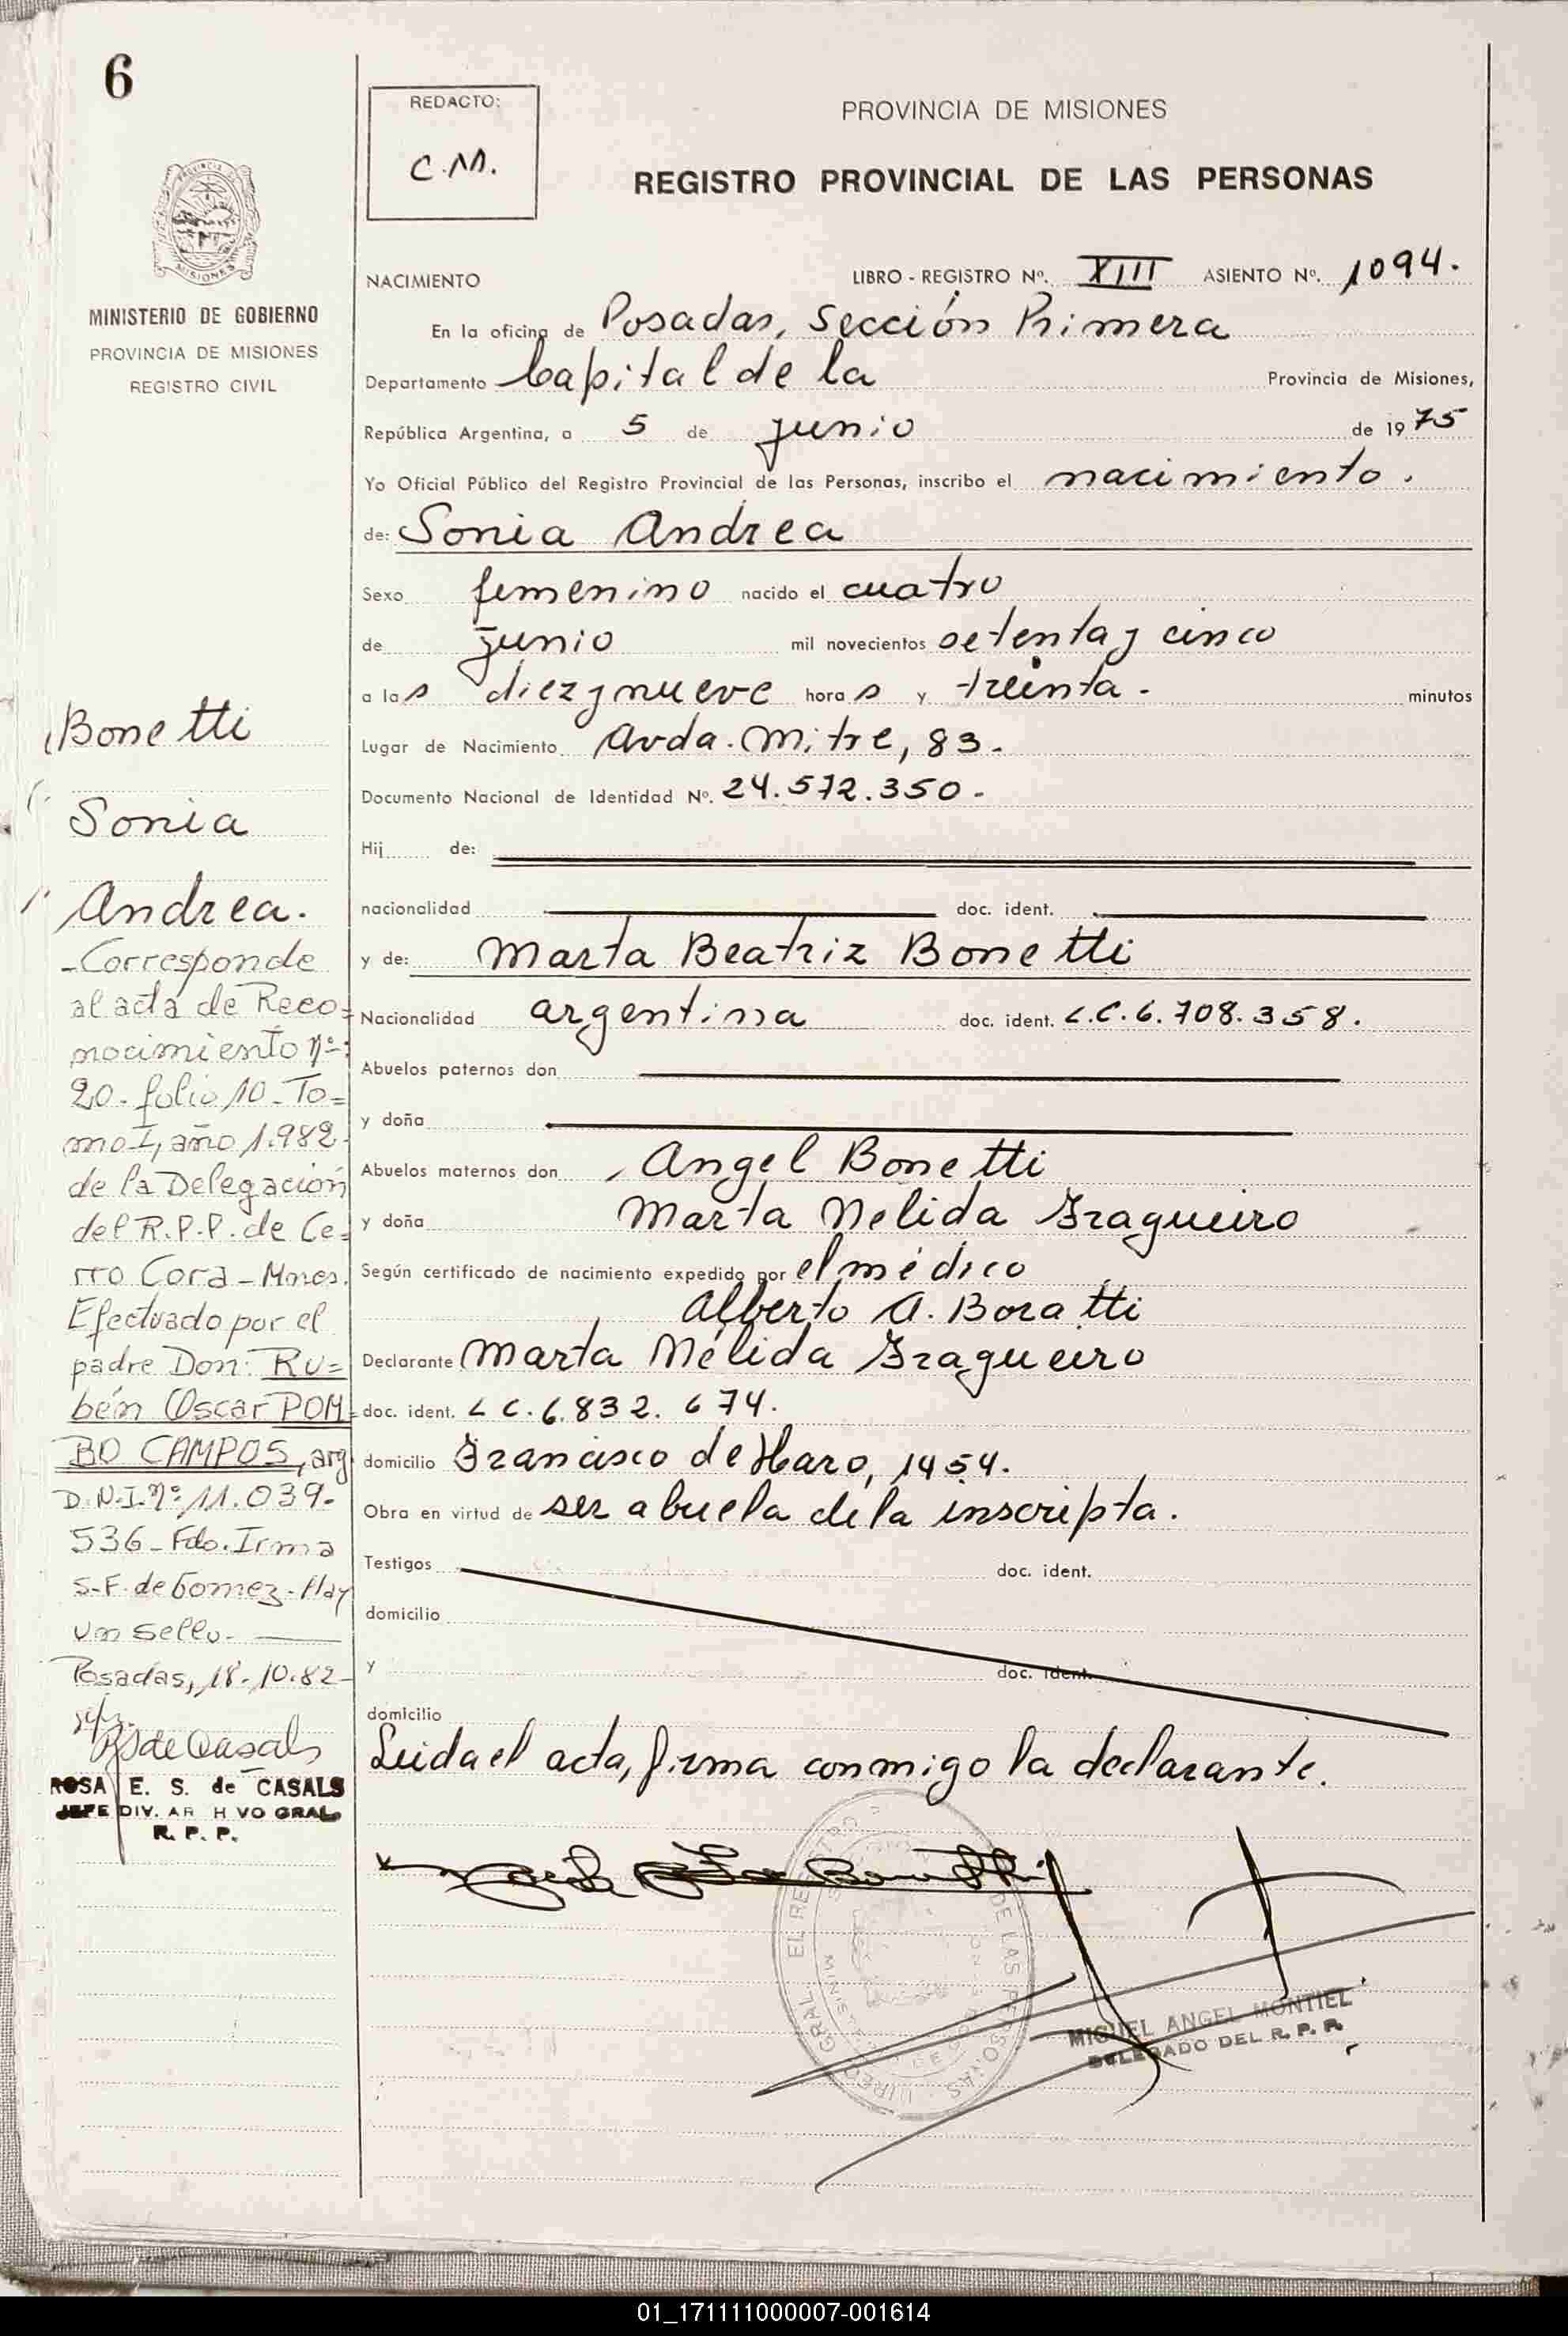 6
REDACTO:
C.M.
PROVINCIA DE MISIONES
REGISTRO PROVINCIAL DE LAS PERSONAS
MINISTERIO DE GOBIERNO
PROVINCIA DE MISIONES
REGISTRO CIVIL
NACIMIENTO LIBRO - REGISTRO Nº. XIII ASIENTO Nº. 1094.
En la oficina de Posadas, Sección Primera
Departamento Capital de la Provincia de Misiones,
República Argentina, a 5 de junio de 1975
Yo Oficial Público del Registro Provincial de las Personas, inscribo el nacimiento.
de: Sonia Andrea
Sexo femenino nacido el cuatro
de junio mil novecientos setenta y cinco
a las diez y nueve horas y treinta. minutos
Lugar de Nacimiento Avda. Mitre, 83.
Documento Nacional de Identidad Nº. 24.572.350.
Hij de:
nacionalidad doc. ident.
y de: Marta Beatriz Bonetti
Nacionalidad argentina doc. ident. L.C. 6.708.358.
Abuelos paternos don
y doña
Abuelos maternos don Angel Bonetti
y doña Marta Nelida Fragueiro
Según certificado de nacimiento expedido por el médico
Alberto A. Boratti
Declarante Marta Nélida Fragueiro
doc. ident. L C. 6.832.674.
domicilio Francisco de Haro, 1454.
Obra en virtud de ser abuela de la inscripta.
Testigos doc. ident.
domicilio
y doc. ident.
domicilio
Leida el acta, firma conmigo la declarante.
Bonetti
Sonia
Andrea.
-Corresponde
al acta de Reco=
nocimiento nº:
20. folio 10 - To=
mo I, año 1.982.
de la Delegación
del R.P.P. de Ce=
rro Corá - Mnes.
Efectuado por el
padre Don: RU=
bén Oscar POM=
BO CAMPOS, arg
D.N.I. nº: 11.039.
536 - Fdo. Irma
S.F. de Gomez - Hay
un sello.
Posadas, 18-10-82
RS de Casals
ROSA E. S. de CASALS
JEFE DIV. AR H VO GRAL
R. P. P.
MIGUEL ANGEL MONTIEL
DELEGADO DEL R. P. P.
01_171111000007-001614